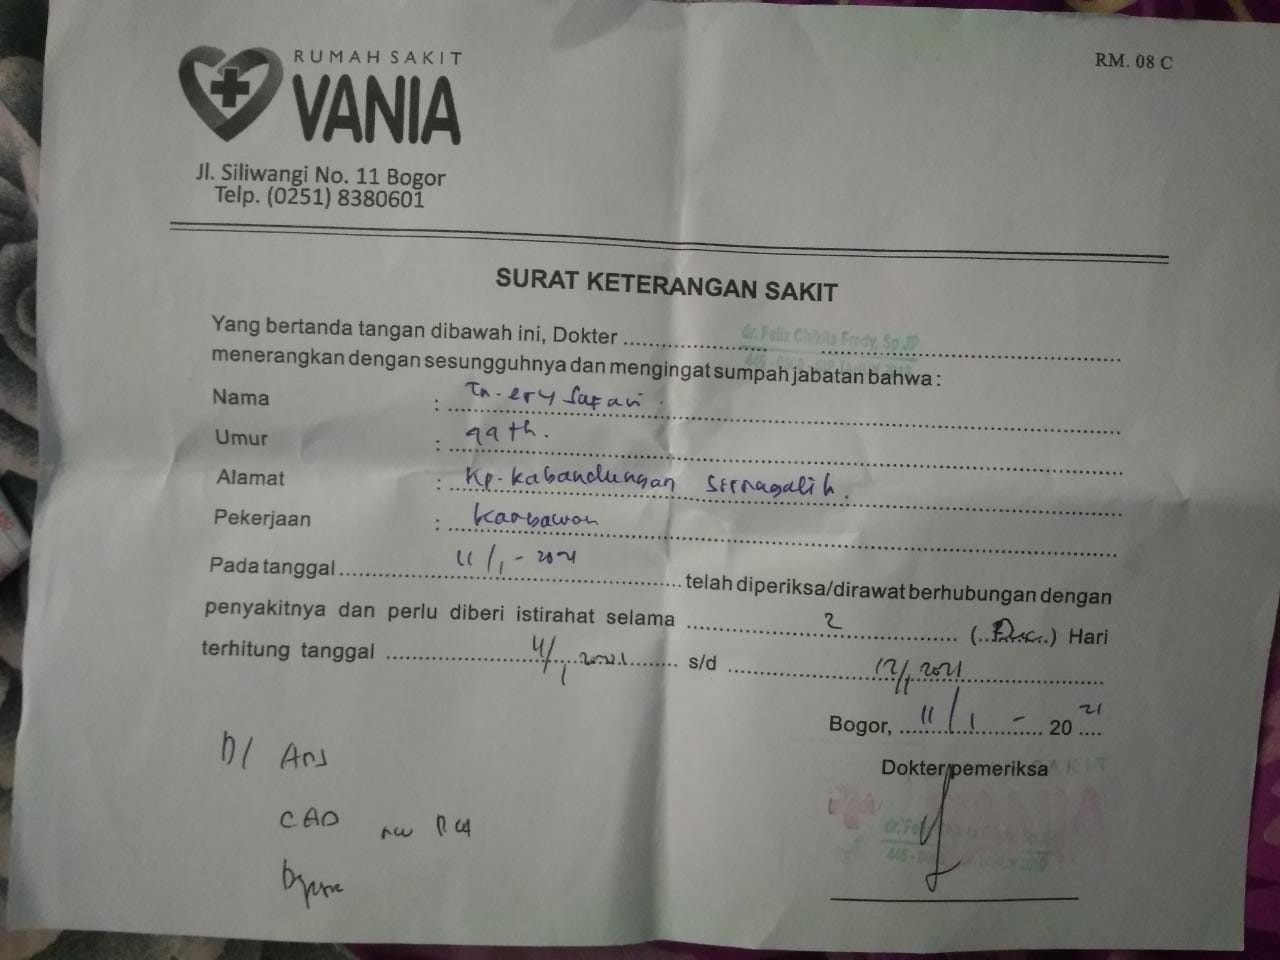 RUMAH SAKIT
VANIA
RM. 08 C
Jl. Siliwangi No. 11 Bogor
Telp. (0251) 8380601
SURAT KETERANGAN SAKIT
Yang bertanda tangan dibawah ini, Dokter dr. Felix Chikita Fredy, Sp.JP
menerangkan dengan sesungguhnya dan mengingat sumpah jabatan bahwa :
Nama : Tn. ery Safari
Umur : 49 th.
Alamat : Kp. Kabandungan Sirnagalih.
Pekerjaan : Karyawan
Pada tanggal 11/1 - 2021 telah diperiksa/dirawat berhubungan dengan
penyakitnya dan perlu diberi istirahat selama 2 (Dua) Hari
terhitung tanggal 11/1 2021 s/d 12/1 2021
Bogor, 11/1 - 2021
Dokter pemeriksa
D/
CAD